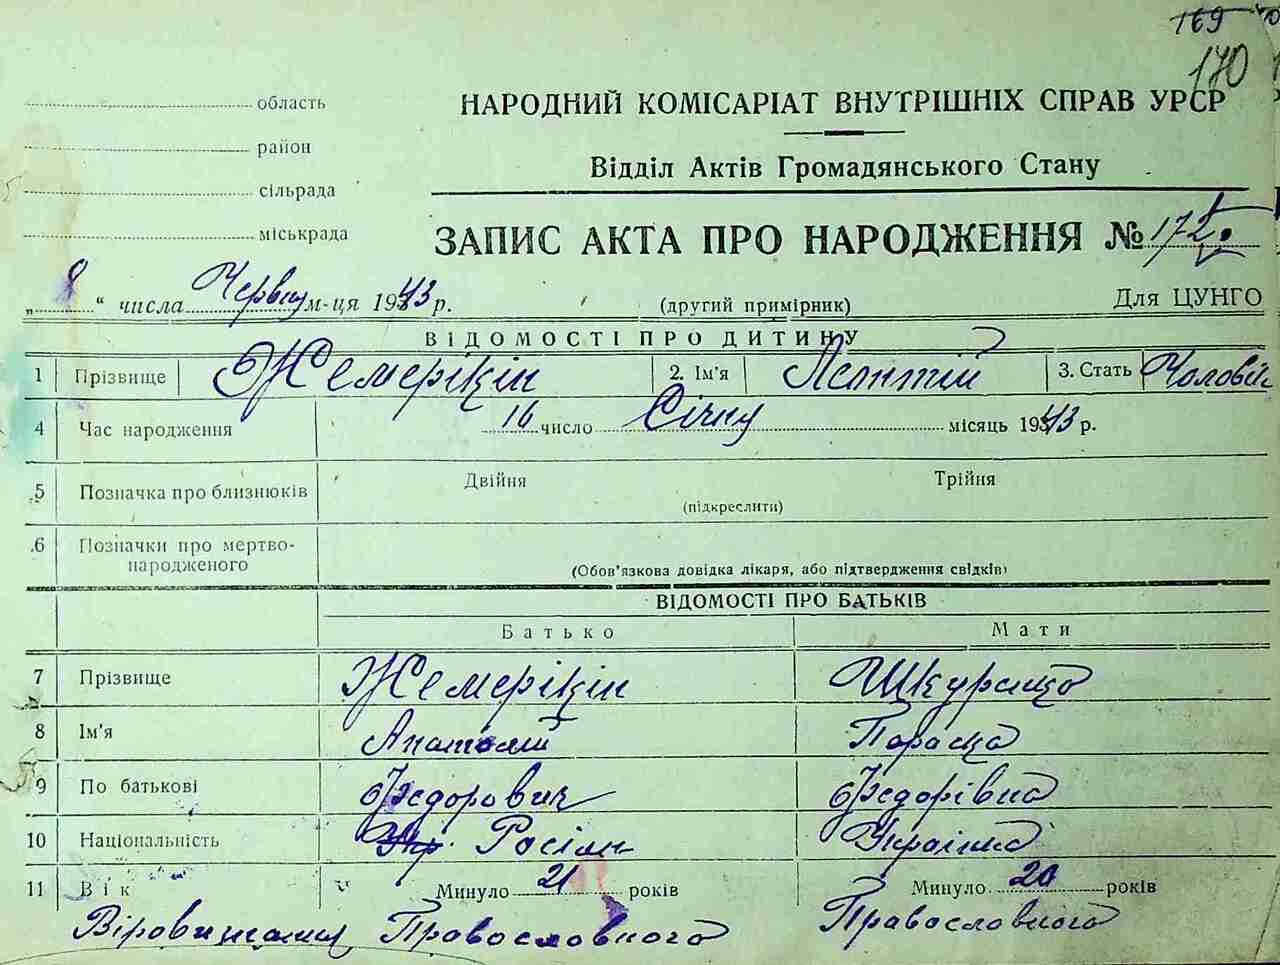 169
170
область
район
сільрада
міськрада
НАРОДНИЙ КОМІСАРІАТ ВНУТРІШНІХ СПРАВ УРСР
Відділ Актів Громадянського Стану
ЗАПИС АКТА ПРО НАРОДЖЕННЯ № 172
„ 8 “ числа Червня м-ця 1943 р.
(другий примірник)
Для ЦУНГО
ВІДОМОСТІ ПРО ДИТИНУ
1 Прізвище Жемерікін 2. Ім'я Леонтій 3. Стать Чоловіч
4 Час народження 16 число Січня місяць 1943 р.
5 Позначка про близнюків Двійня Трійня
(підкреслити)
6 Позначки про мертво-
народженого
(Обов'язкова довідка лікаря, або підтвердження свідків)
ВІДОМОСТІ ПРО БАТЬКІВ
Батько Мати
7 Прізвище Жемерікін
8 Ім'я Анатолій Параска
9 По батькові Федорович Федорівна
10 Національність Укр. Росіян Українка
11 Вік Минуло 21 років Минуло 20 років
Віровизнання Православного Православного